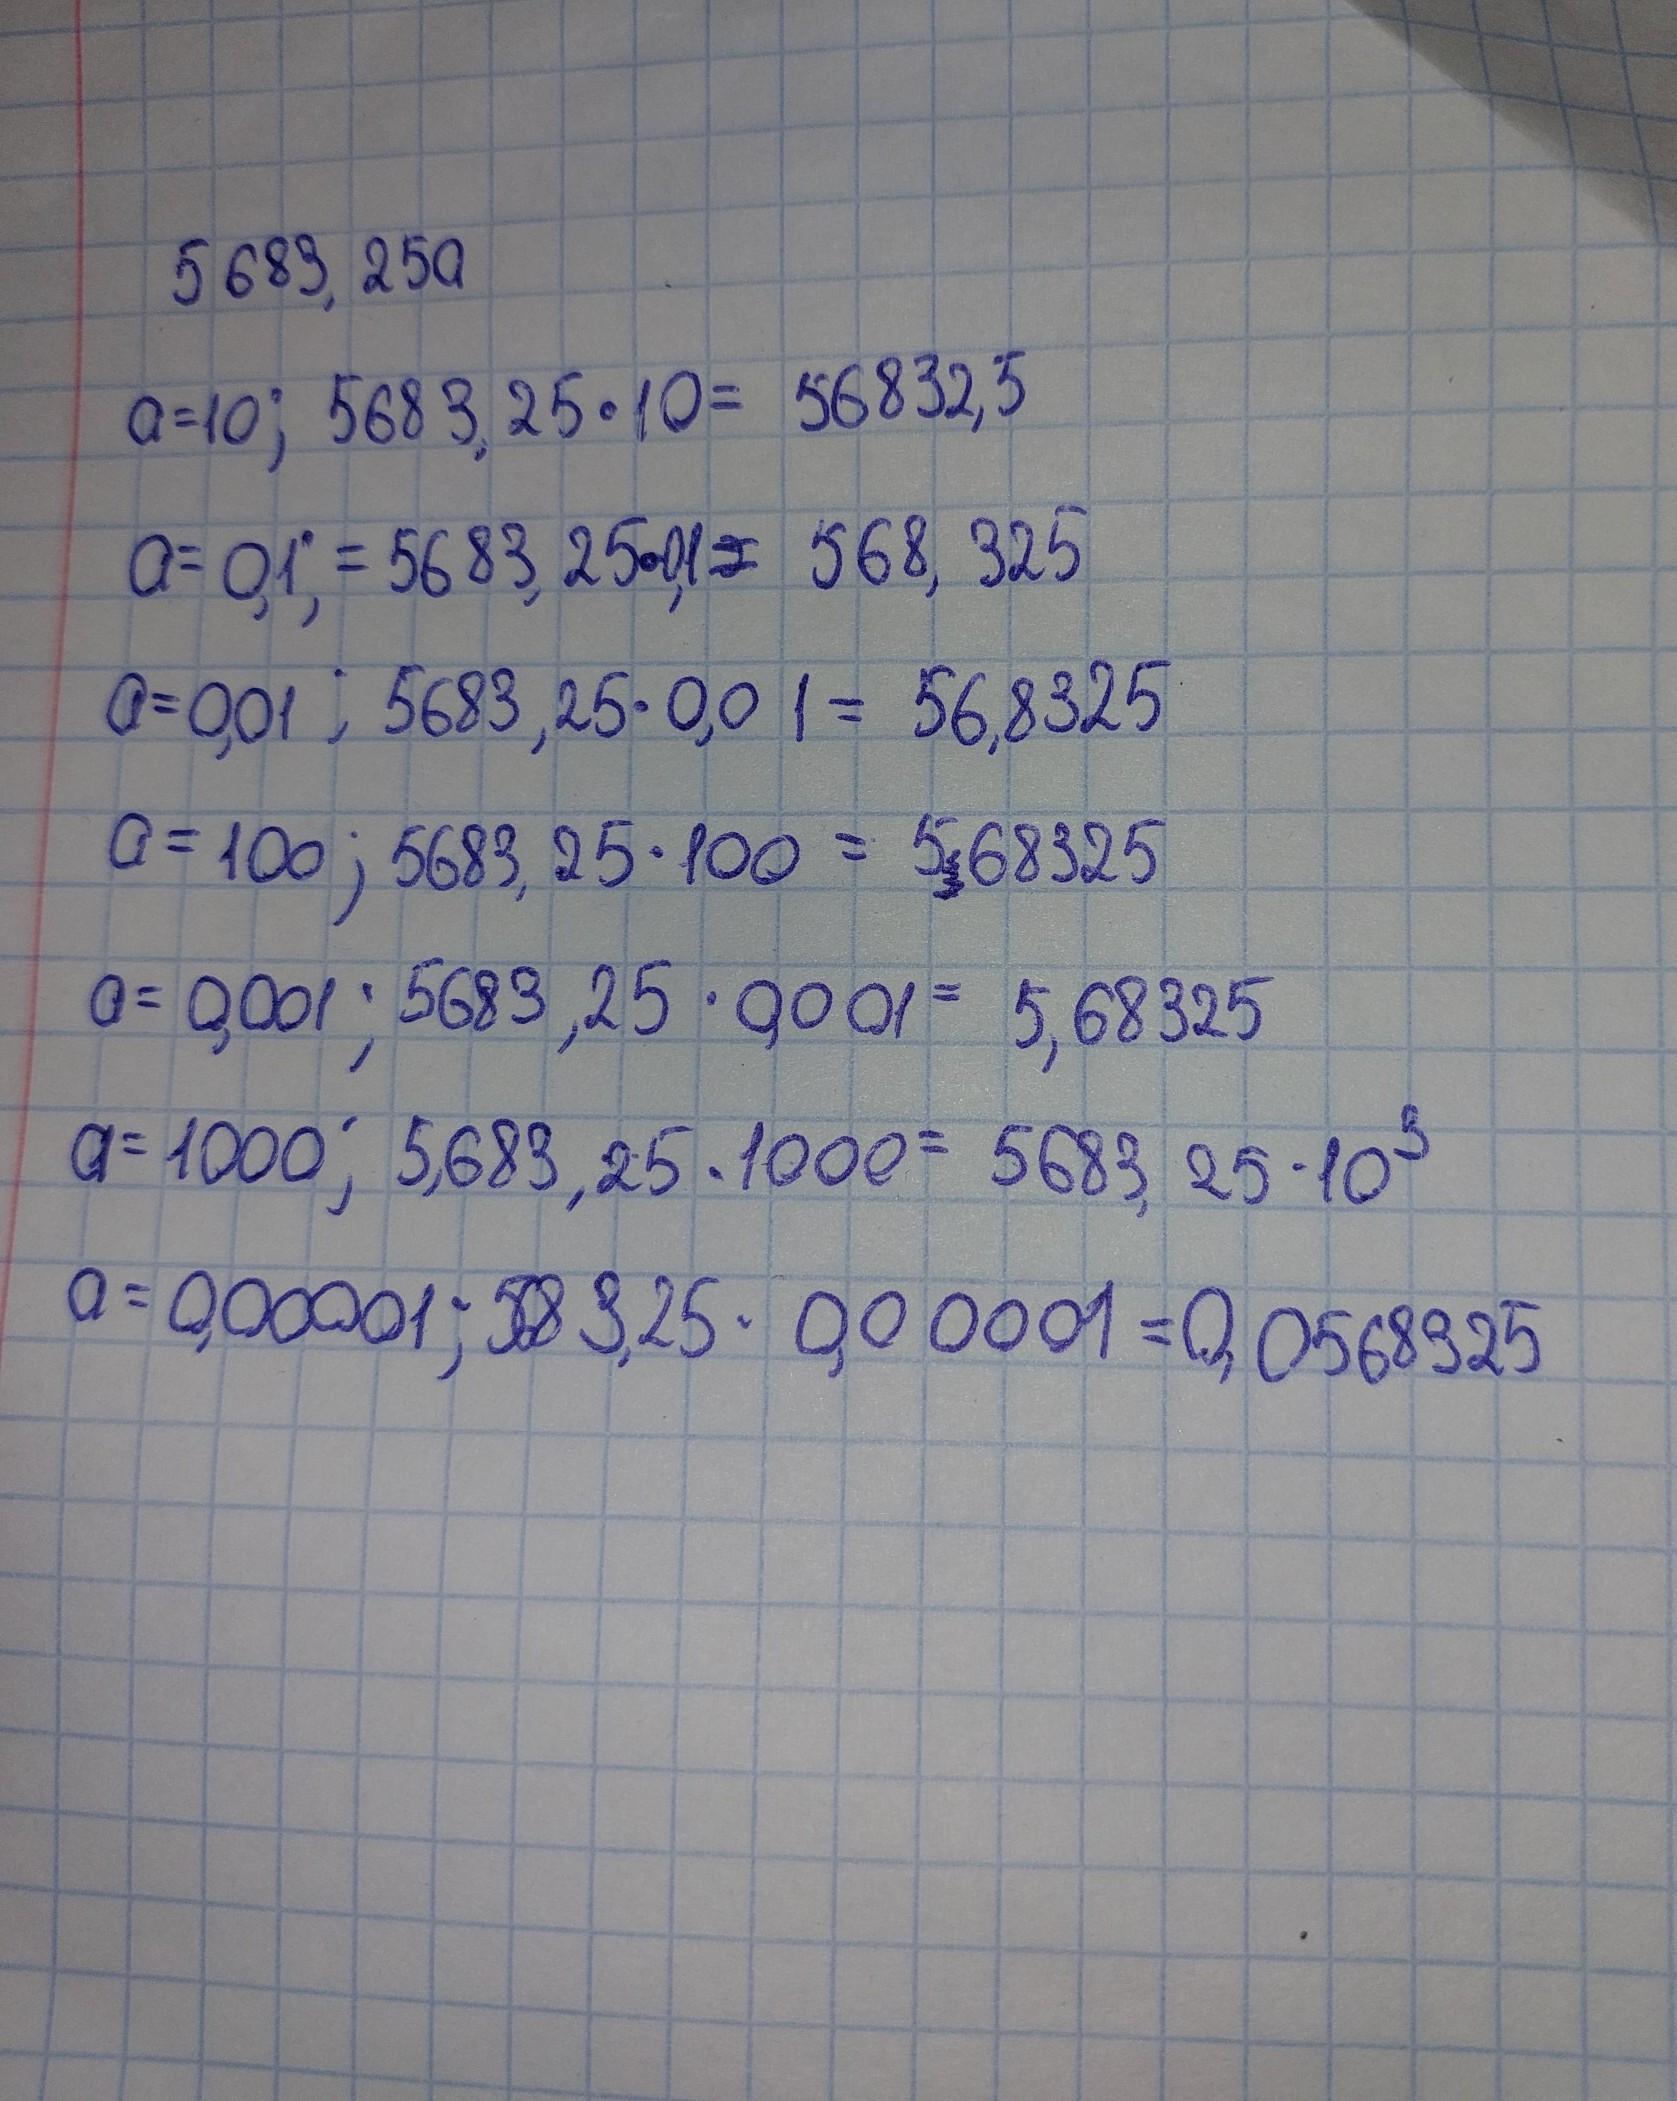 5683,25a
a=10; 5683,25·10= 56832,5
a=0,1; =5683,25·0,1= 568,325
a=0,01; 5683,25·0,01= 56,8325
a=100; 5683,25·100= 568325
a=0,001; 5683,25·0,001= 5,68325
a=1000; 5,683,25·1000= 5683,25·10³
a=0,00001; 583,25·0,00001=0,0568325